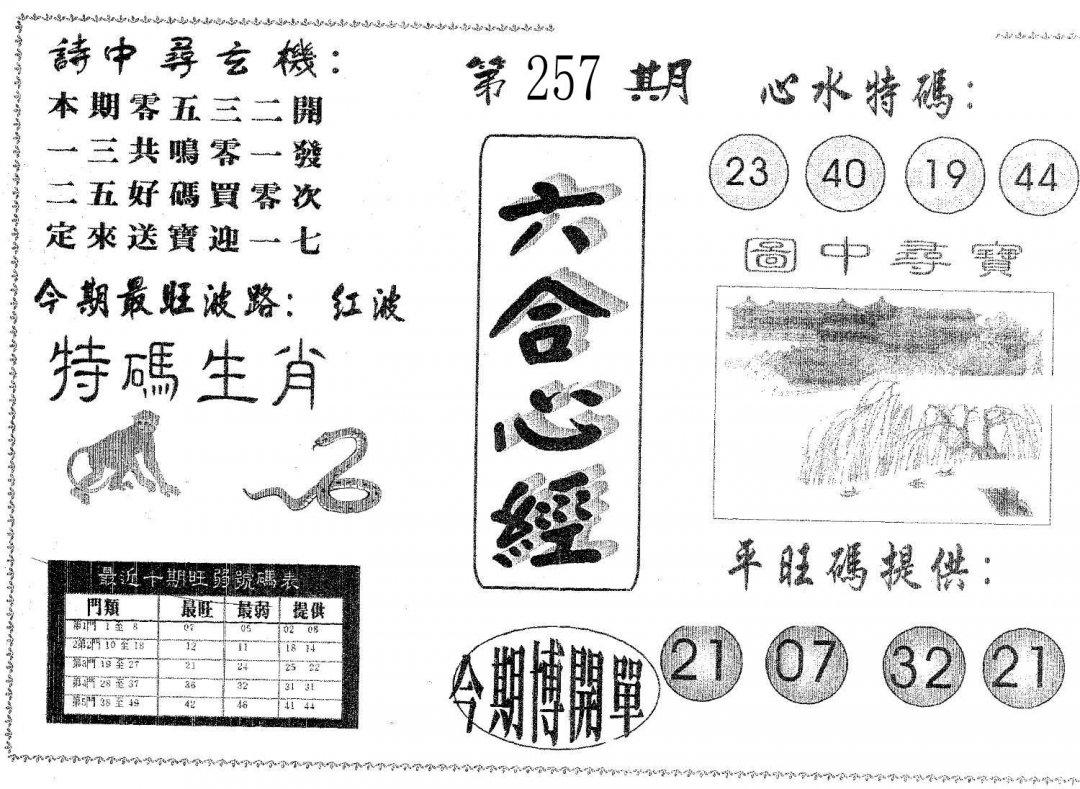 詩中尋玄機：
本期零五三二開
一三共鳴零一發
二五好碼買零次
定來送寶迎一七
今期最旺波路： 红波
特碼生肖
最近十期旺弱號碼表
門類 最旺 最弱 提供
第1門 1 至 8 07 05 02 08
2第2門 10 至 18 12 11 18 14
第3門 19 至 27 21 24 25 22
第4門 28 至 37 36 32 31 31
第5門 38 至 49 42 46 41 44
第 257 期
六合心經
今期博開單
心水特碼：
23 40 19 44
圖中尋寶
平旺碼提供：
21 07 32 21